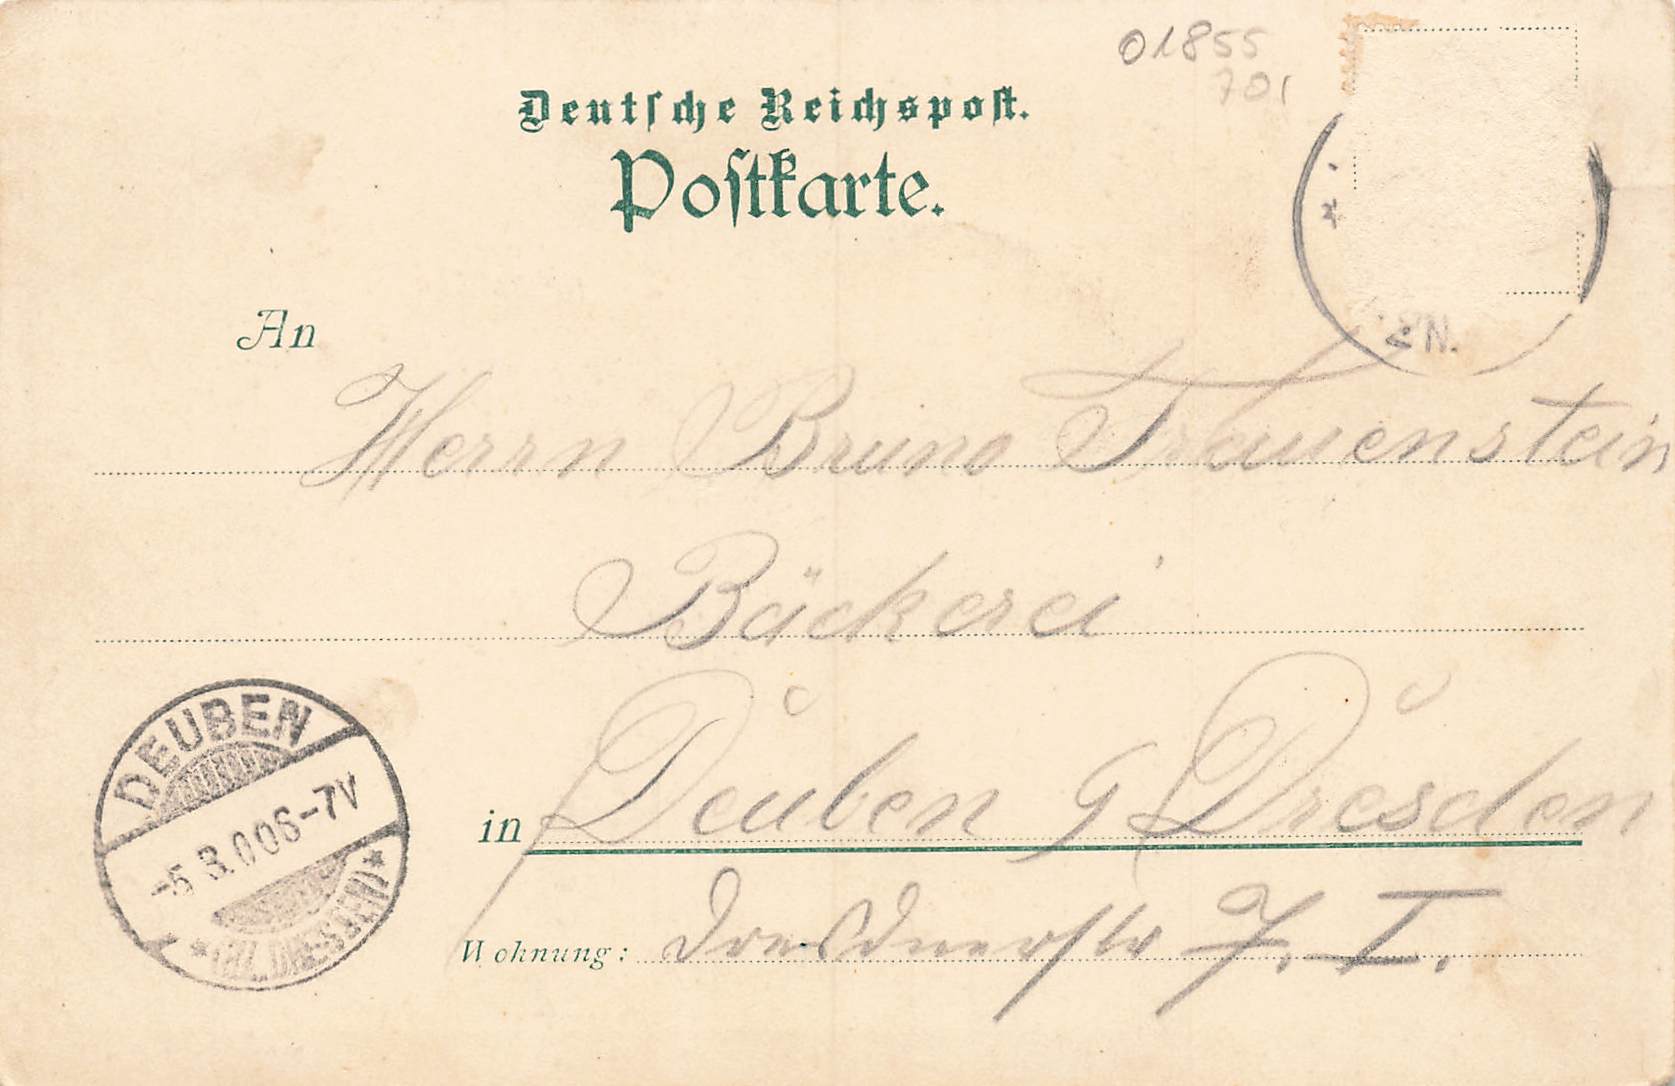 01855
701
Deutsche Reichspost.
Postkarte.
An
Herrn Bruno Trauenstein
Bäckerei
in Deuben b Dresden
Wohnung: Dresdnerstr 7. I.
DEUBEN
-5 3.00 6-7V
*(BZ. DRESDEN)*